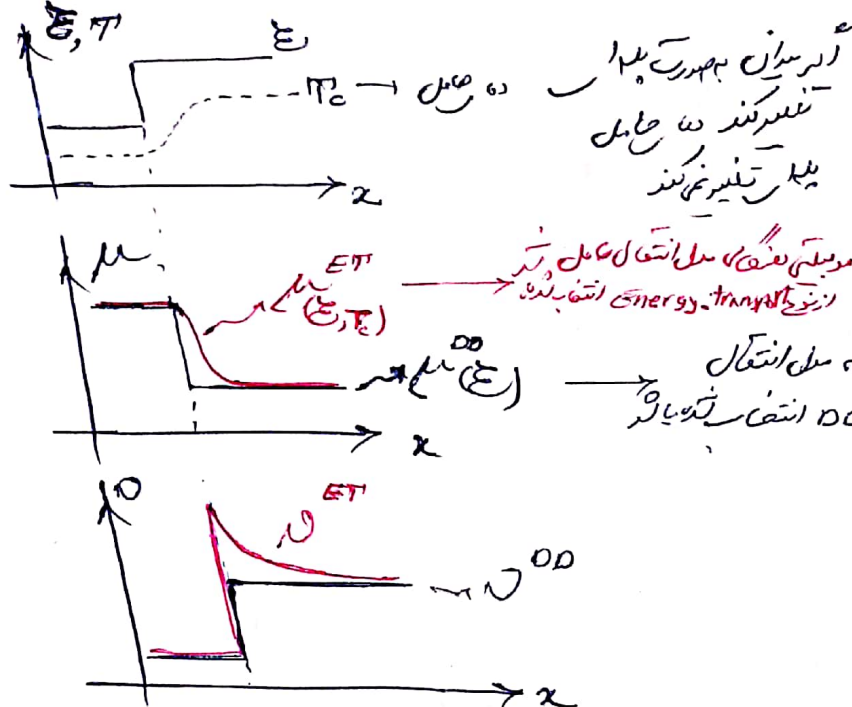 ξ, T
ξ
T_c → دمای حامل
اگر میدان به صورت پله ای
تغییر کند دمای حامل
پله ای تغییر نمی کند
x
μ
μ^ET (ξ, T_c)
مدل انتقال حامل
از نوع Energy.transport انتخاب شده
μ^DD (ξ)
مدل انتقال
DD انتخاب شده باشد
x
υ
υ^ET
υ^DD
x